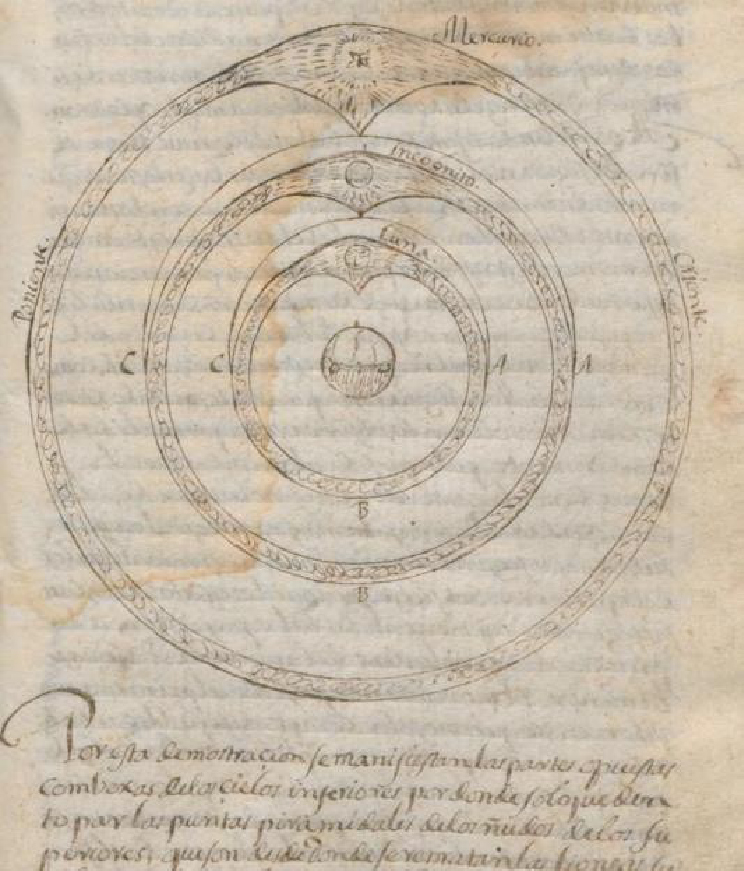 Mercurio.
incognito.
Luna.
Poniente.
Oriente.
C C A A
B
B
Por esta demostracion se manifiestan las partes opuestas
combexas, delos cielos inferiores por donde solo
to par las puntas piramidales delos ñudos delos su
periores, que son desde donde se rematan las